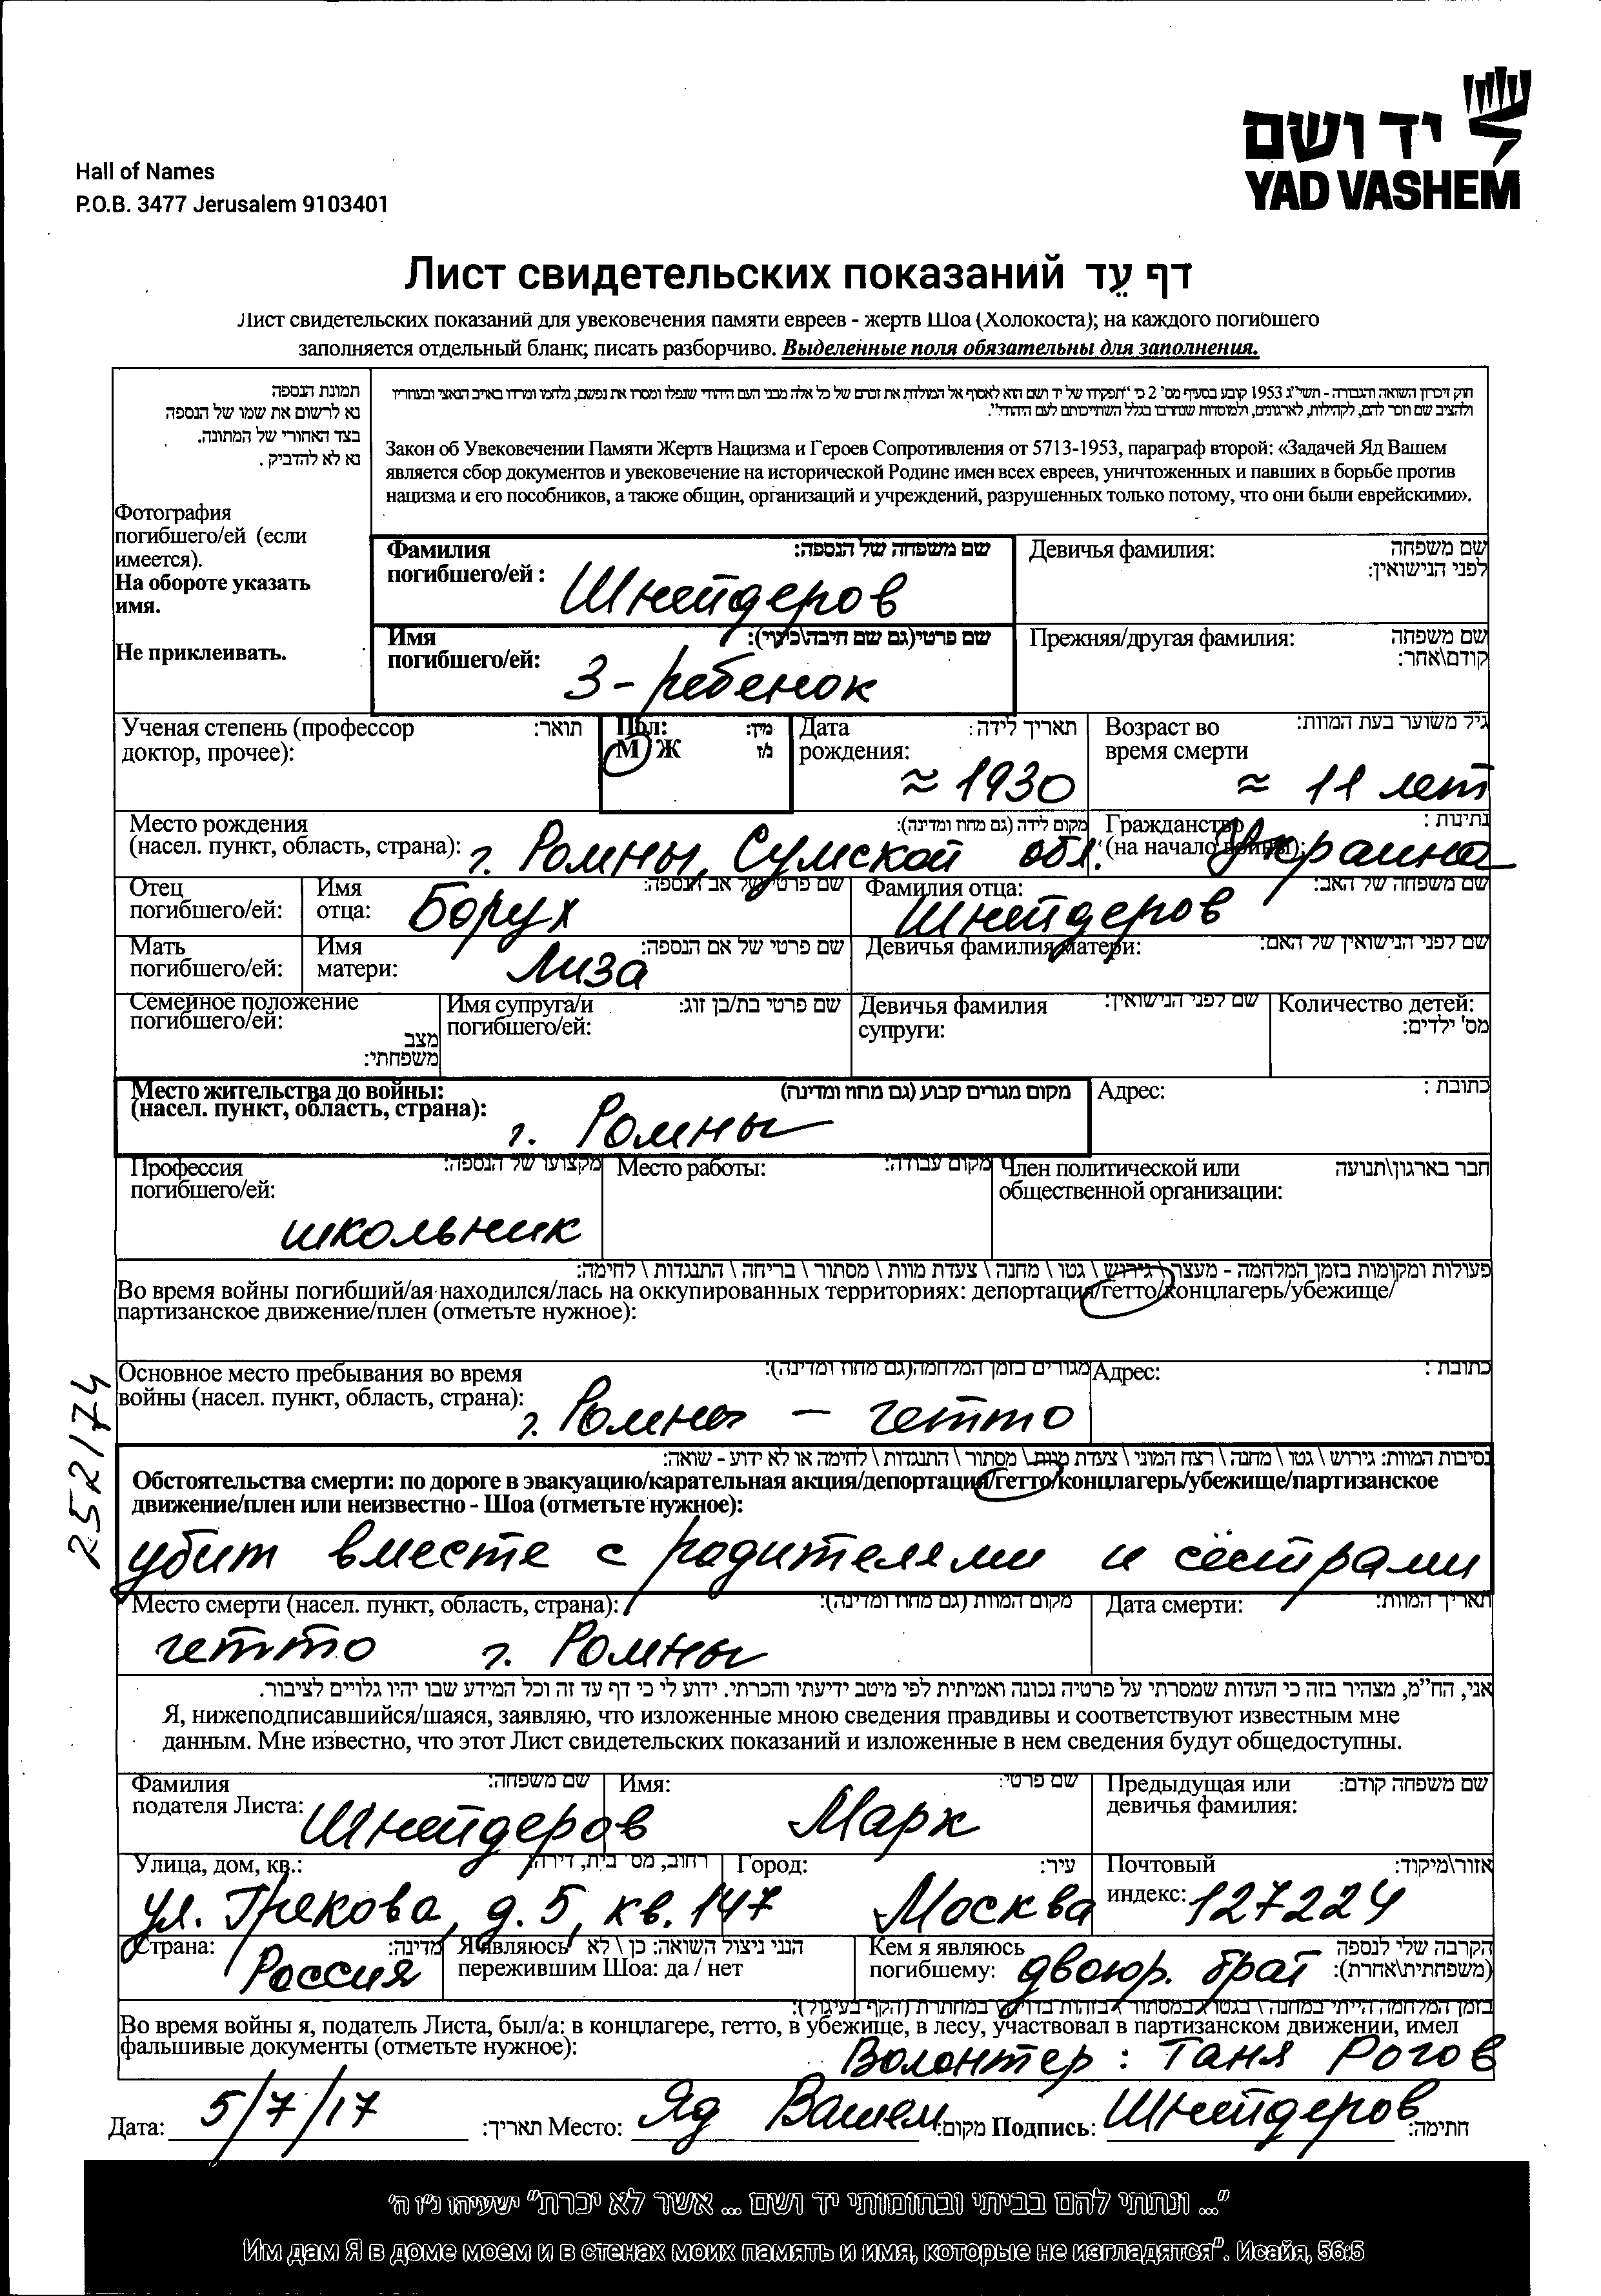 יד ושם
YAD VASHEM
Hall of Names
P.O.B. 3477 Jerusalem 9103401
Лист свидетельских показаний דף עֵד
Лист свидетельских показаний для увековечения памяти евреев - жертв Шоа (Холокоста); на каждого погибшего
заполняется отдельный бланк; писать разборчиво. Выделенные поля обязательны для заполнения.
תמונת הנספה
נא לרשום את שמו של הנספה
בצד האחורי של התמונה.
נא לא להדביק.
Фотография
погибшего/ей (если
имеется).
На обороте указать
имя.
Не приклеивать.
חוק זיכרון השואה והגבורה - תשי"ג 1953 קובע בסעיף מס' 2 כי "תפקידו של יד ושם הוא לאסוף אל המולדת את זכרם של כל אלה מבני העם היהודי שנפלו ומסרו את נפשם, נלחמו ומרדו באויב הנאצי ובעוזריו
ולהציב שם וזכר להם, לקהילות, לארגונים, ולמוסדות שנחרבו בגלל השתייכותם לעם היהודי".
Закон об Увековечении Памяти Жертв Нацизма и Героев Сопротивления от 5713-1953, параграф второй: «Задачей Яд Вашем
является сбор документов и увековечение на исторической Родине имен всех евреев, уничтоженных и павших в борьбе против
нацизма и его пособников, а также общин, организаций и учреждений, разрушенных только потому, что они были еврейскими».
Фамилия שם משפחה של הנספה:
погибшего/ей : Шнейдеров
Девичья фамилия: שם משפחה
לפני הנישואין:
Имя שם פרטי(גם שם חיבה\כינוי):
погибшего/ей: 3 - ребенок
Прежняя/другая фамилия: שם משפחה
קודם\אחר:
Ученая степень (профессор תואר:
доктор, прочее):
Пол: מין:
М Ж ז/נ
Дата תאריך לידה:
рождения: ≈ 1930
Возраст во גיל משוער בעת המוות:
время смерти ≈ 11 лет
Место рождения מקום לידה (גם מחוז ומדינה):
(насел. пункт, область, страна): г. Ромны, Сумской обл.
Гражданство נתינות :
(на начало войны): Украина
Отец
погибшего/ей:
Имя שם פרטי של אב הנספה:
отца: Борух
Фамилия отца: שם משפחה של האב:
Шнейдеров
Мать
погибшего/ей:
Имя שם פרטי של אם הנספה:
матери: Лиза
Девичья фамилия матери: שם לפני הנישואין של האם:
Семейное положение
погибшего/ей:
מצב
משפחתי:
Имя супруга/и שם פרטי בת/בן זוג:
погибшего/ей:
Девичья фамилия שם לפני הנישואין:
супруги:
Количество детей:
מס' ילדים:
Место жительства до войны: מקום מגורים קבוע (גם מחוז ומדינה)
(насел. пункт, область, страна): г. Ромны
Адрес: כתובת :
Профессия מקצועו של הנספה:
погибшего/ей:
школьник
Место работы: מקום עבודה:
Член политической или חבר בארגון\תנועה
общественной организации:
פעולות ומקומות בזמן המלחמה - מעצר \ גירוש \ גטו \ מחנה \ צעדת מוות \ מסתור \ בריחה \ התנגדות \ לחימה:
Во время войны погибший/ая находился/лась на оккупированных территориях: депортация/гетто/концлагерь/убежище/
партизанское движение/плен (отметьте нужное):
Основное место пребывания во время מגורים בזמן המלחמה(גם מחוז ומדינה):
войны (насел. пункт, область, страна): г. Ромны - гетто
Адрес: כתובת :
נסיבות המוות: גירוש \ גטו \ מחנה \ רצח המוני \ צעדת מוות \ מסתור \ התנגדות \ לחימה או לא ידוע - שואה:
Обстоятельства смерти: по дороге в эвакуацию/карательная акция/депортация/гетто/концлагерь/убежище/партизанское
движение/плен или неизвестно - Шоа (отметьте нужное):
убит вместе с родителями и сёстрами
Место смерти (насел. пункт, область, страна): מקום המוות (גם מחוז ומדינה):
гетто г. Ромны
Дата смерти: תאריך המוות:
אני, הח"מ, מצהיר בזה כי העדות שמסרתי על פרטיה נכונה ואמיתית לפי מיטב ידיעתי והכרתי. ידוע לי כי דף עד זה וכל המידע שבו יהיו גלויים לציבור.
Я, нижеподписавшийся/шаяся, заявляю, что изложенные мною сведения правдивы и соответствуют известным мне
данным. Мне известно, что этот Лист свидетельских показаний и изложенные в нем сведения будут общедоступны.
Фамилия שם משפחה:
подателя Листа: Шнейдеров
Имя: שם פרטי:
Марк
Предыдущая или שם משפחה קודם:
девичья фамилия:
Улица, дом, кв.: רחוב, מס' בית, דירה:
ул. Грекова, д. 5, кв. 147
Город: עיר:
Москва
Почтовый אזור\מיקוד:
индекс: 127224
Страна: מדינה:
Россия
Я являюсь הנני ניצול השואה: כן \ לא
пережившим Шоа: да / нет
Кем я являюсь הקרבה שלי לנספה
погибшему: двоюр. брат (משפחתית\אחרת):
בזמן המלחמה הייתי במחנה \ בגטו \ במסתור \ בזהות בדויה \ במחתרת (הקף בעיגול):
Во время войны я, податель Листа, был/а: в концлагере, гетто, в убежище, в лесу, участвовал в партизанском движении, имел
фальшивые документы (отметьте нужное):
Волонтер : Таня Рогов
Дата: 5/7/17 תאריך: Место: Яд Вашем מקום: Подпись: Шнейдеров חתימה:
252/74
"... ונתתי להם בביתי ובחומותי יד ושם ... אשר לא יכרת" ישעיהו נ"ו ה'
Им дам Я в доме моем и в стенах моих память и имя, которые не изгладятся". Исайя, 56:5